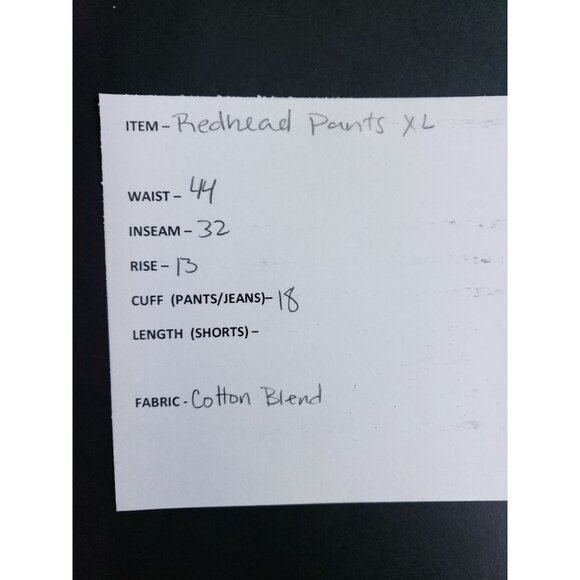 ITEM – Redhead Pants XL
WAIST – 44
INSEAM – 32
RISE – 13
CUFF (PANTS/JEANS)– 18
LENGTH (SHORTS) –
FABRIC - Cotton Blend